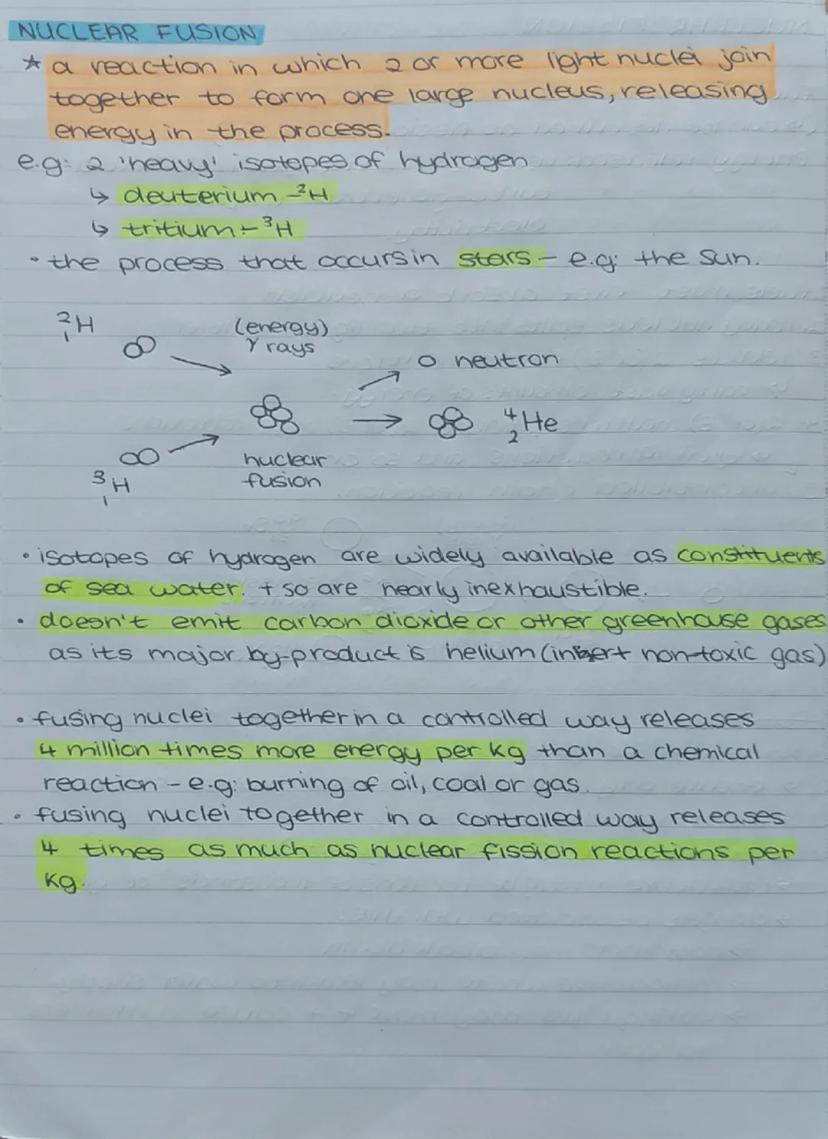 NUCLEAR FUSION
* a reaction in which 2 or more light nuclei join
together to form one large nucleus, releasing
energy in the process.
e.g: 2 'heavy' isotopes of hydrogen
↳ deuterium - ²H
↳ tritium - ³H
• the process that occurs in stars - e.g: the sun.
²₁H
(energy)
γ rays
neutron
⁴₂He
³₁H
nuclear
fusion
• isotopes of hydrogen are widely available as constituents
of sea water. + so are nearly inexhaustible.
• doesn't emit carbon dioxide or other greenhouse gases
as its major by-product is helium (inert non-toxic gas)
• fusing nuclei together in a controlled way releases
4 million times more energy per kg than a chemical
reaction - e.g: burning of oil, coal or gas.
• fusing nuclei together in a controlled way releases
4 times as much as nuclear fission reactions per
kg.